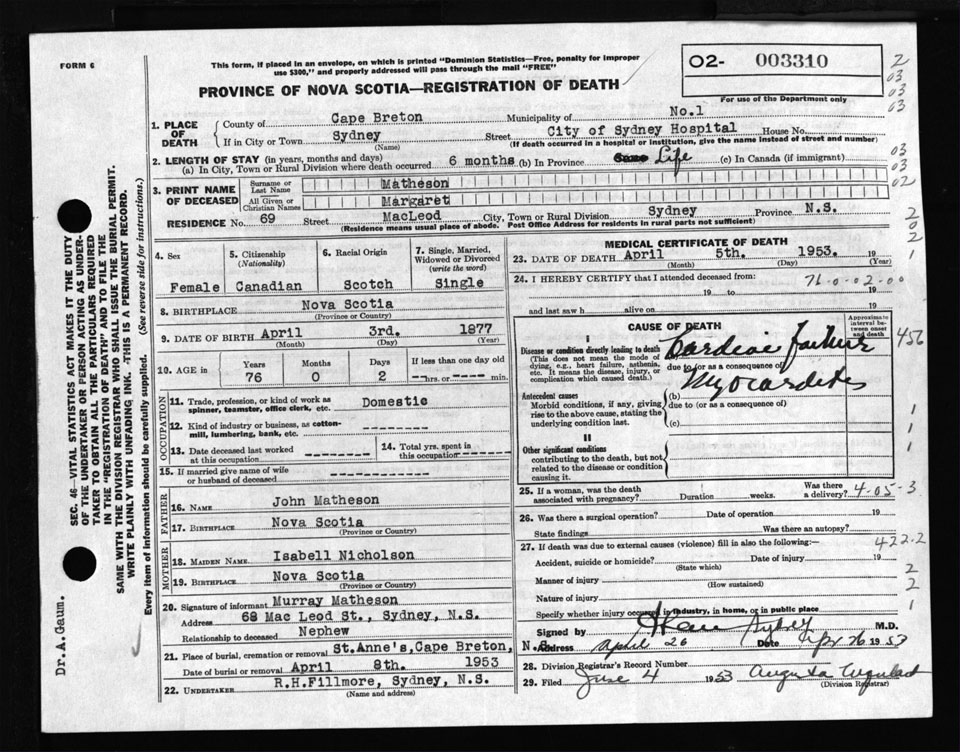 FORM 6
This form, if placed in an envelope, on which is printed "Dominion Statistics—Free, penalty for improper
use $300," and properly addressed will pass through the mail "FREE"
O2- 003310
For use of the Department only
PROVINCE OF NOVA SCOTIA—REGISTRATION OF DEATH
1. PLACE OF DEATH
County of Cape Breton Municipality of No.1
If in City or Town Sydney Street City of Sydney Hospital House No.
(Name) (If death occurred in a hospital or institution, give the name instead of street and number)
2. LENGTH OF STAY (in years, months and days)
(a) In City, Town or Rural Division where death occurred 6 months (b) In Province Life (c) In Canada (if immigrant)
3. PRINT NAME OF DECEASED
Surname or Last Name Matheson
All Given or Christian Names Margaret
RESIDENCE No. 69 Street MacLeod City, Town or Rural Division Sydney Province N.S.
(Residence means usual place of abode. Post Office Address for residents in rural parts not sufficient)
4. Sex
Female
5. Citizenship
(Nationality)
Canadian
6. Racial Origin
Scotch
7. Single, Married, Widowed or Divorced
(write the word)
Single
8. BIRTHPLACE Nova Scotia
(Province or Country)
9. DATE OF BIRTH April 3rd. 1877
(Month) (Day) (Year)
10. AGE in
Years Months Days If less than one day old
76 0 2 --hrs. or ---- min.
OCCUPATION
11. Trade, profession, or kind of work as
spinner, teamster, office clerk, etc. Domestic
12. Kind of industry or business, as cotton-
mill, lumbering, bank, etc.
13. Date deceased last worked
at this occupation
14. Total yrs. spent in
this occupation
15. If married give name of wife
or husband of deceased
FATHER
16. NAME John Matheson
17. BIRTHPLACE Nova Scotia
(Province or Country)
MOTHER
18. MAIDEN NAME Isabell Nicholson
19. BIRTHPLACE Nova Scotia
(Province or Country)
20. Signature of informant Murray Matheson
Address 68 Mac Leod St., Sydney, N.S.
Relationship to deceased Nephew
21. Place of burial, cremation or removal St.Anne's,Cape Breton, N.S.
Date of burial or removal April 8th. 1953
22. UNDERTAKER R.H.Fillmore, Sydney, N.S.
(Name and address)
MEDICAL CERTIFICATE OF DEATH
23. DATE OF DEATH April 5th. 1953. 19
(Month) (Day) (Year)
24. I HEREBY CERTIFY that I attended deceased from:
19 to 19
and last saw h alive on 19
CAUSE OF DEATH
Approximate interval between onset and death
I
Disease or condition directly leading to death
(This does not mean the mode of
dying, e.g., heart failure, asthenia,
etc. It means the disease, injury, or
complication which caused death.)
Cardiac failure
due to (or as a consequence of)
Antecedent causes
Morbid conditions, if any, giving
rise to the above cause, stating the
underlying condition last.
(b) Myocarditis
due to (or as a consequence of)
(c)
II
Other significant conditions
contributing to the death, but not
related to the disease or condition
causing it.
25. If a woman, was the death
associated with pregnancy? Duration weeks. Was there a delivery? 4-05-3
26. Was there a surgical operation? Date of operation 19
State findings Was there an autopsy?
27. If death was due to external causes (violence) fill in also the following: 422.2
Accident, suicide or homicide? Date of injury 19
(State which)
Manner of injury
(How sustained)
Nature of injury
Specify whether injury occurred in industry, in home, or in public place
Signed by M.D.
Address April 26 Date Apr 26 1953
28. Division Registrar's Record Number
29. Filed June 4 1953 Augusta
(Division Registrar)
SEC. 46—VITAL STATISTICS ACT MAKES IT THE DUTY
OF THE UNDERTAKER OR PERSON ACTING AS UNDER-
TAKER TO OBTAIN ALL THE PARTICULARS REQUIRED
IN THE "REGISTRATION OF DEATH" AND TO FILE THE
SAME WITH THE DIVISION REGISTRAR WHO SHALL ISSUE THE BURIAL PERMIT.
WRITE PLAINLY WITH UNFADING INK. THIS IS A PERMANENT RECORD.
Every item of information should be carefully supplied. (See reverse side for instructions.)
Dr. A. Gaum.
2
03
03
03
03
03
02
2
02
2
1
456
1
1
1
2
2
1